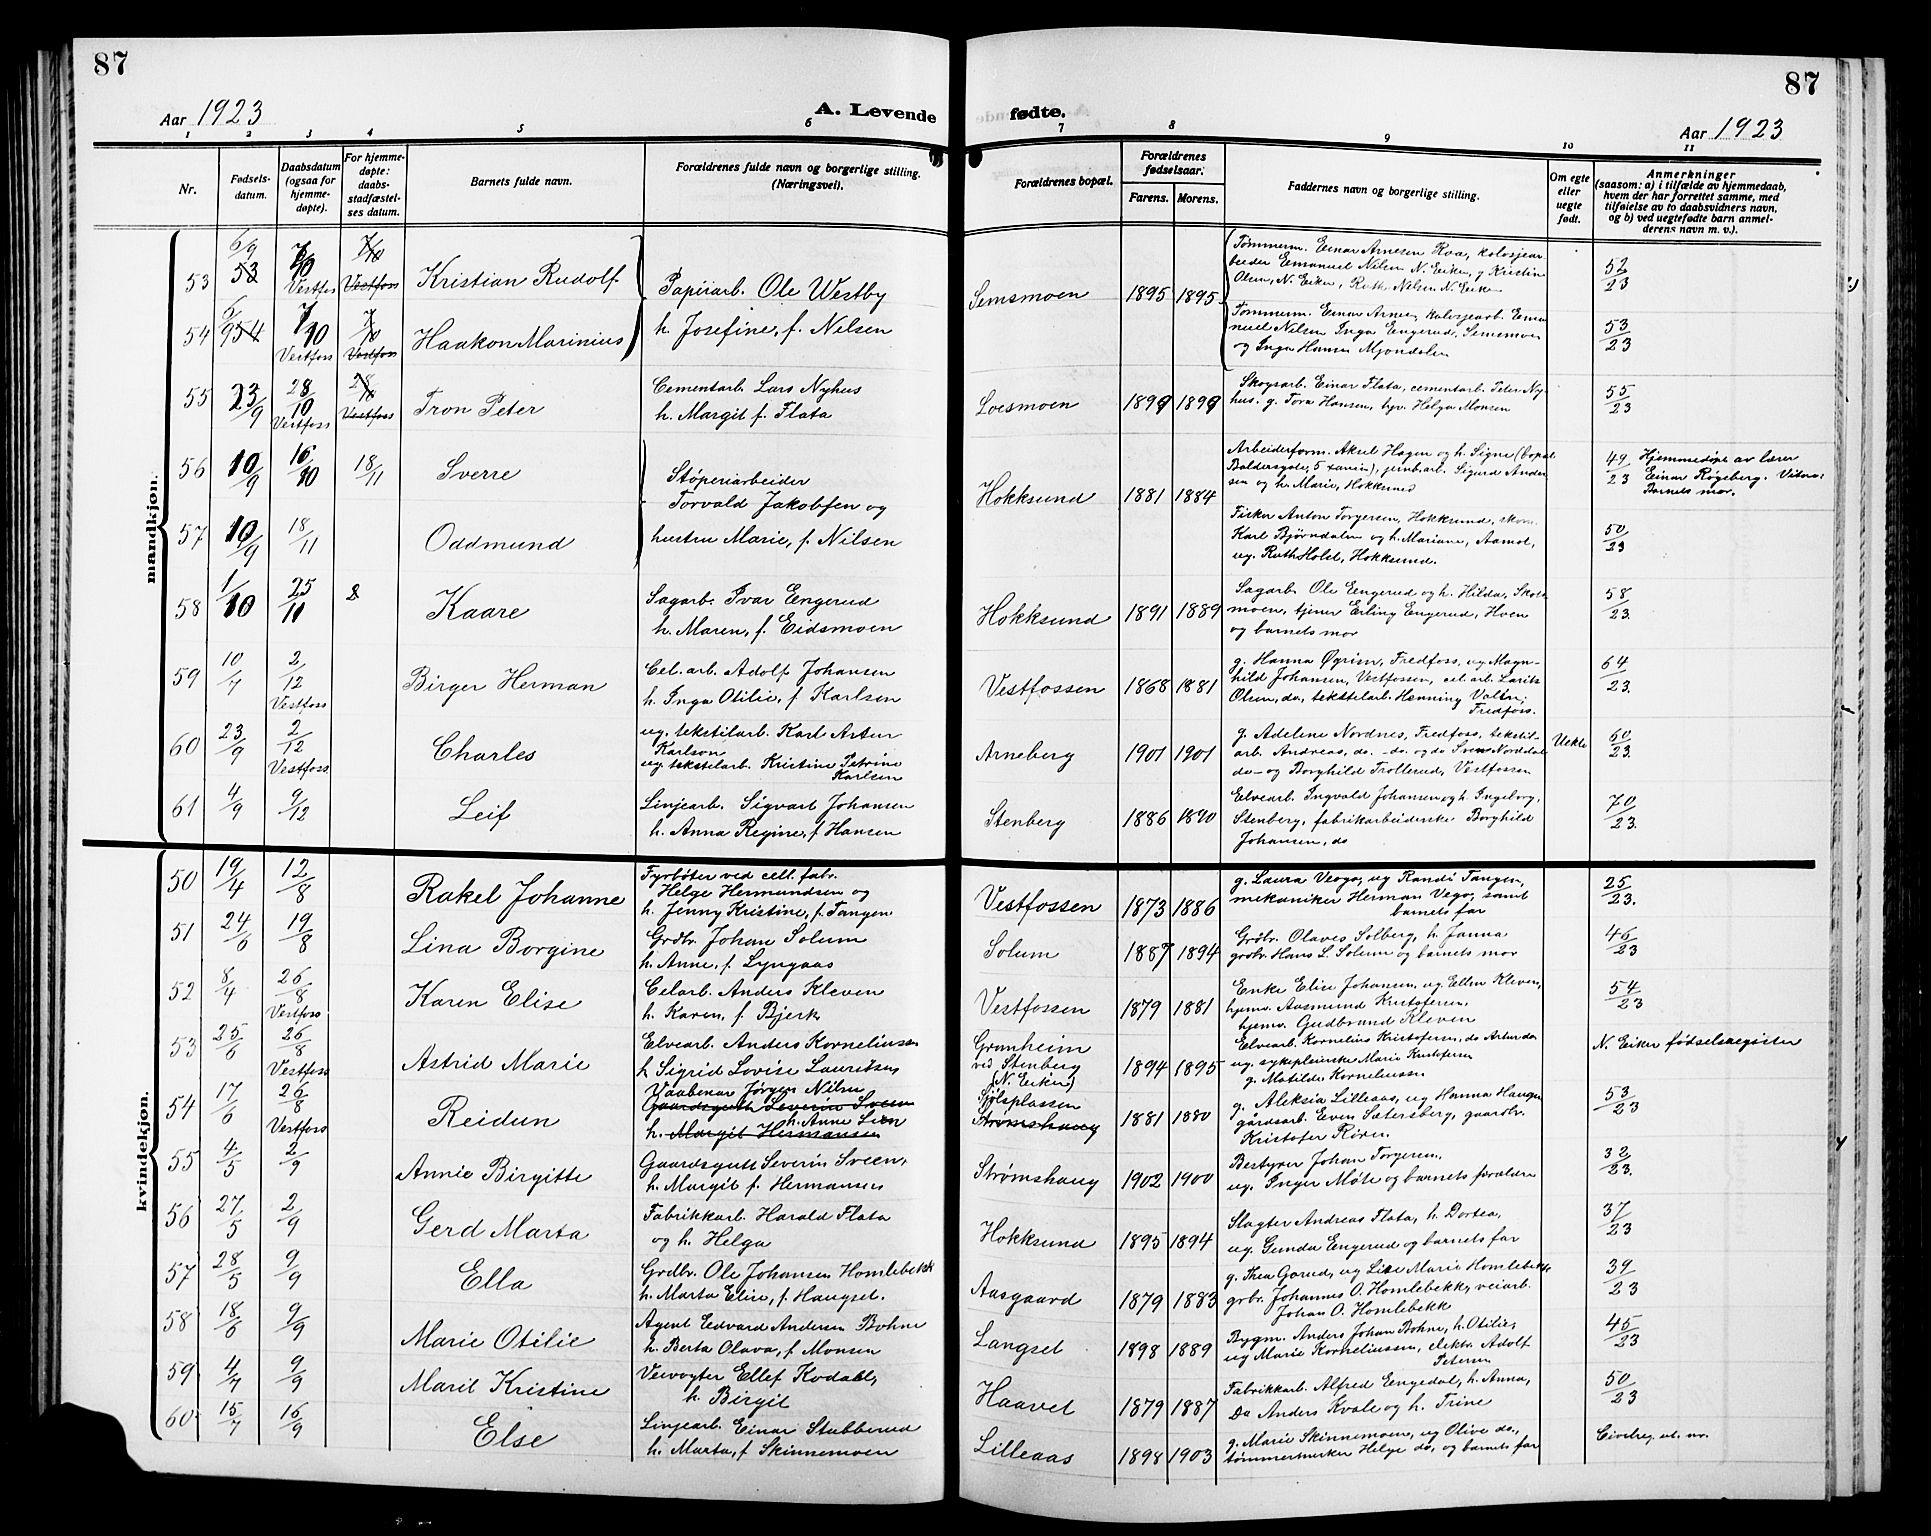 87
87
Aar 1923
A. Levende
fødte.
Aar 1923
1 2 3 4 5 6 7 8 9 10 11
Nr.
Fødsels-
datum.
Daabsdatum
(ogsaa for
hjemme-
døpte).
For hjemme-
døpte:
daabs-
stadfæstel-
ses datum.
Barnets fulde navn.
Forældrenes fulde navn og borgerlige stilling.
(Næringsvei).
Forældrenes bopæl.
Forældrenes
fødselsaar:
Farens.
Morens.
Faddernes navn og borgerlige stilling.
Om egte
eller
uegte
født.
Anmerkninger
(saasom: a) i tilfælde av hjemmedaab,
hvem der har forrettet samme, med
tilføielse av to daabsvidners navn,
og b) ved uegtefødte barn anmel-
derens navn m. v.).
mandkjøn.
53 6/9 7/10 Vestfoss 7/10 Vestfoss Kristian Rudolf
Papirarb. Ole Westby
Semsmoen 1895 1895
Tømmerm. Einar Arnesen Roa, kalosjear-
beider Emanuel Nilsen N. Eiker, g. Kristine
Olsen, N. Eiker, Ruth Nilsen N. Eiker
52/23
54 6/9 7/10 Vestfoss 7/10 Vestfoss Haakon Marinius
h. Josefine, f. Nelsen
Tømmerm. Einar Arnes, kalosjearb. Ema
nuel Nilsen Inga Engerud, Semsmoen
og Inga Hansen Mjøndalen
53/23
55 23/9 28/10 Vestfoss 28/10 Vestfoss Tron Peter
Cementarb. Lars Nyhus
h. Margit f. Flata
Loesmoen 1899 1899
Skogsarb. Einar Flata, cementarb. Peter Ny-
hus. g. Tora Hansen, Helga Monsen
55/23
56 10/9 16/10 18/11 Sverre
Støperiarbeider
Torvald Jakobsen og
Hokksund 1881 1884
Arbeiderform. Aksel Hagen og h. Signe (bopæl
Baldersgate 5 ), jernb.arb. Sigurd Ander-
sen og h. Marie, Hokksund
49/23 Hjemmedøpt av lærer
Einar Røgeberg. Vitne:
Barnets mor.
57 10/9 18/11 Oddmund
hustru Marie, f. Nilsen
Fisker Anton Torgersen, Hokksund, skom.
Karl Bjørndalen og h. Mariane, Aamot,
ug. Ruth Holst, Hokksund.
50/23
58 1/10 25/11 Kaare
Sagarb. Ivar Engerud
h. Maren, f. Eidsmoen
Hokksund 1891 1889
Sagarb. Ole Engerud og h. Hilda, Skots
moen, tjener Erling Engerud, Hoen
og barnets mor
58/23.
59 10/7 2/12 Vestfoss Birger Herman
Cel.arb. Adolf Johansen
h. Inga Otilie, f Karlsen
Vestfossen 1868 1881
g. Hanna Øgrim, Fredfoss, ug Magn-
hild Johansen, Vestfossen, cel. arb. Laritz
Olsen, do, tekstilarb. Henning Valtin,
Fredfoss.
64/23.
60 23/9 2/12 Vestfoss Charles
ug. tekstilarb. Karl Artur
Karlson
ug. tekstilarb. Kristine Petrine
Karlsen
Arneberg 1901 1901
g. Adelene Nordnes, Fredfoss, tekstil-
arb. Andreas, do. - do. og do Svenn Norddal
do - og Borghild Trollerud, Vestfossen
Uekte
60/23.
61 4/9 9/12 Leif
Linjearb. Sigvart Johansen
h. Anna Regine, f Hansen
Stenberg 1886 1890
Elvearb. Ingvald Johansen og h. Ingeborg,
Stenberg, fabrikarbeiderske Borghild
Johansen, do
70/23.
kvindekjøn.
50 19/4 12/8 Rakel Johanne
Fyrbøter ved cell. fabr.
Helge Hermundsen og
h. Jenny Kristine, f. Tangen
Vestfossen 1873 1886
g. Laura Vego, ug Randi Tangen,
mekaniker Herman Vego, samt
barnets far
25/23.
51 24/6 19/8 Lina Borgine
Grdbr. Johan Solum
h. Anne, f. Lyngaas
Solum 1887 1894
Grdbr. Olaves Solberg, h. Janna
grdbr. Hans L. Solum og barnets mor
46/23
52 8/4 26/8 Vestfoss Karen Elise
Celarb. Anders Kleven
h. Karen, f. Bjerk
Vestfossen 1879 1881
Enke Elise Johansen, ug. Ellen Kleven,
hjemv. Aasmund Kristofersen,
hjemv. Gudbrand Kleven
54/23
53 25/6 26/8 Vestfoss Astrid Marie
Elvearb. Anders Korneliussen
h Sigrid Lovise Lauritsen
Granheim
ved Stenberg
(N. Eiker)
1894 1895
Elvearb. Kornelius Kristofersen, do Artur do
ug. sykepleierske Marie Kristofersen
g. Matilde Korneliussen
N. Eiker fødselsregister
54 17/6 26/8 Vestfoss Reidun
Vaabenar Jørgen Nilsen
Gaardsgutt Severin Sveen
h. Anne Lien
h. Margit Hermansen
Sjölsplassen
Strømshaug
1881 1880
g. Aleksia Lilleaas, ug Hanna Haugen
gårdsarb. Even Sætersberg, gaardbr.
Kristofer Røren.
53/23
55 4/5 2/9 Annie Birgitte
Gaardsgutt Severin Sveen,
h. Margit f. Hermansen
Strømshaug 1902 1900
Bestyrer Johan Torgersen,
ug. Inger Møte og barnets forældre
32/23.
56 27/5 2/9 Gerd Marta
Fabrikkarb. Harald Flata
og h. Helga
Hokksund 1895 1894
Slagter Andreas Flata, h. Dortea,
ug. Gunda Engerud og barnets far
37/23
57 28/5 9/9 Ella
Grdbr. Ole Johansen Homlebekk
h. Marta Elise, f. Haugset.
Aasgaard 1879 1883
g. Thea Gorud, ug Lise Marie Homlebekk
grbr. Johannes O. Homlebekk, veiarb.
Johan O. Homlebekk
39/23
58 18/6 9/9 Marie Otilie
Agent Edvard Andersen Bohne
h. Berta Olava, f Monsen
Langset 1898 1889
Bygm. Anders Johan Bohne, h. Otilie,
ug Marie Korneliussen, elektr. Adolf
Petersen
45/23
59 4/7 9/9 Maril Kristine
Veivogter Ellef Kodahl,
h. Birgit
Haavet 1879 1887
Fabrikkarb. Alfred Engedal, h. Anna,
Do Anders Kvale og h. Trine
50/23
60 15/7 16/9 Else
Linjearb. Einar Stubberud
h. Marta, f Skinnemoen
Lilleaas 1898 1903
g. Marie Skinnemoen, ug Olive do.,
tømmermerker Helge do, og barnets far